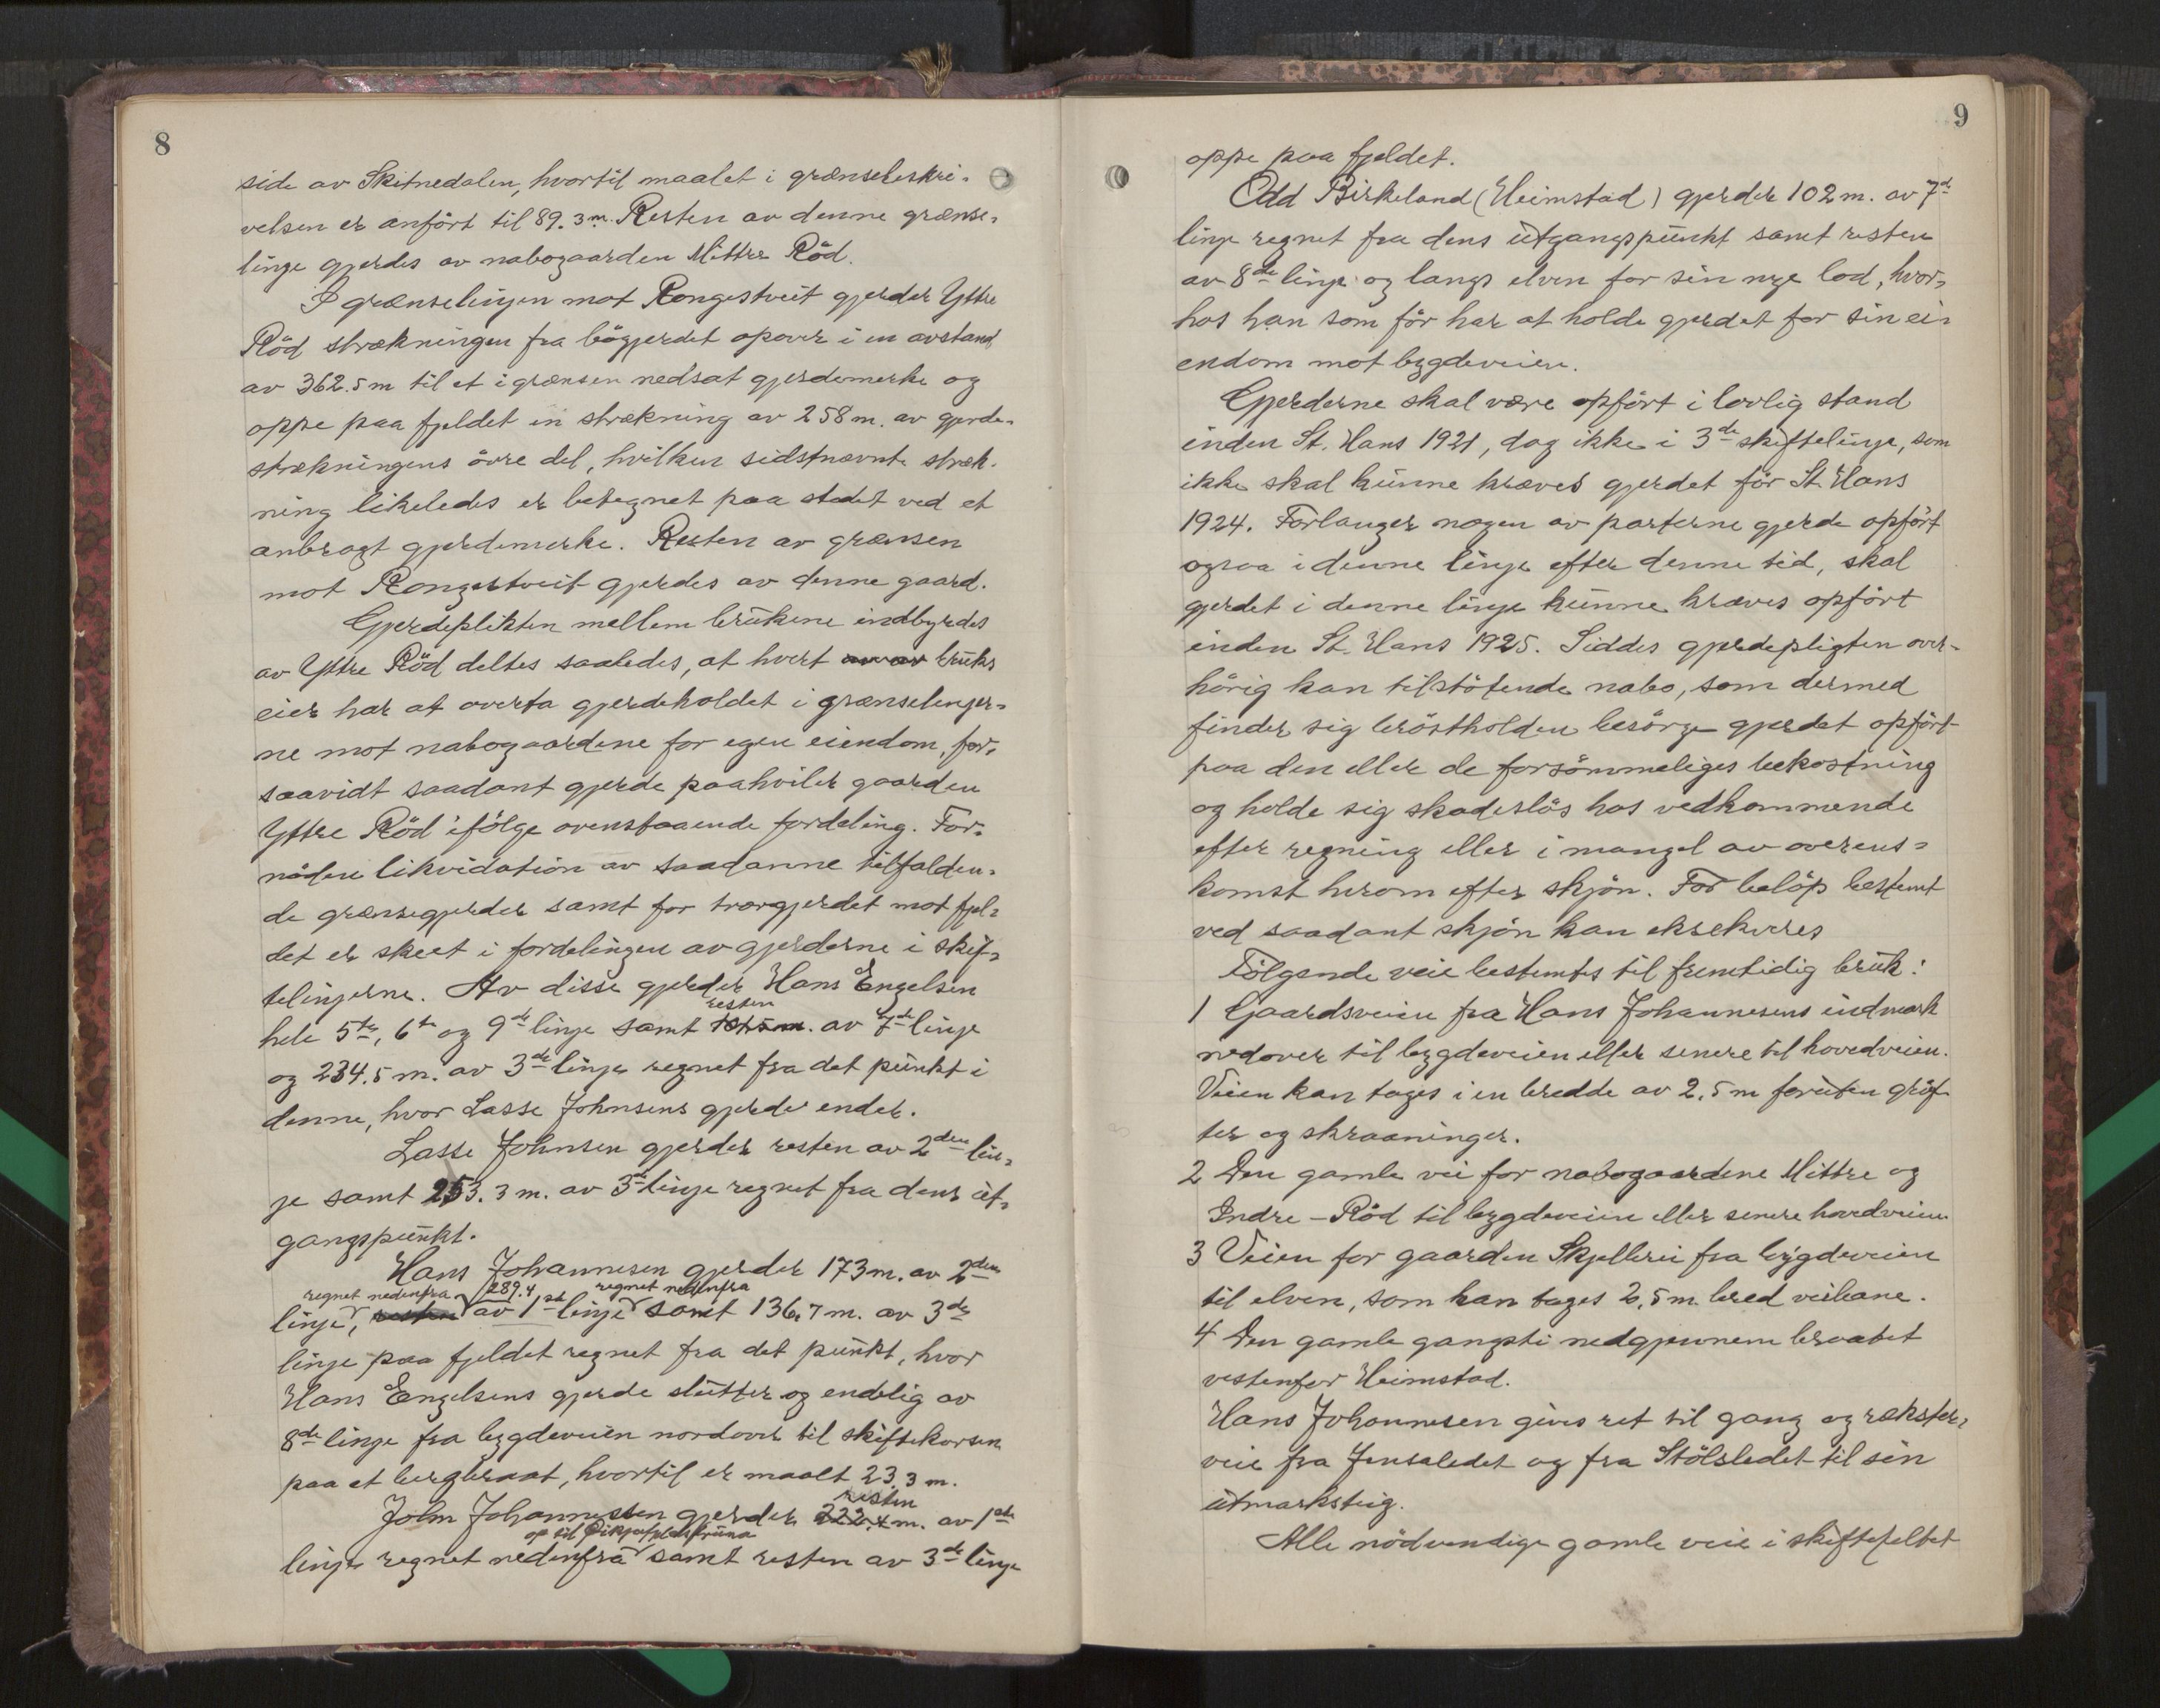 8
side av Skitnedalen, hvortil maalet i grænsebeskri-
velsen er anført til 89.3 m. Resten av denne grænse-
linje gjerdes av nabogaarden Mittre Röd.
I grænselinjen mot Rongestveit gjerder Yttre
Röd strækningen fra bögjerdet opover i en avstand
av 362.5 m til et i grænsen nedsat gjerdemerke og
oppe paa fjeldet en strækning av 258 m. av gjerde-
strækningens övre del, hvilken sidstnævnte stræk-
ning likeledes er betegnet paa stedet ved et
anbragt gjerdemerke. Resten av grænsen
mot Rongestveit gjerdes av denne gaard.
Gjerdeplikten mellem brukene indbyrdes
av Yttre Röd deltes saaledes, at hvert bruks
eier har at overta gjerdeholdet i grænselinjer-
ne mot nabogaardene for egen eiendom, for-
saavidt saadant gjerde paahviler gaarden
Yttre Röd ifölge ovenstaaende fordeling. For-
nöden likvidation av saadanne tilfalden-
de grænsegjerder samt for tvergjerdet mot fjel-
det er skeet i fordelingen av gjerderne i skif-
telinjerne. Av disse gjerder Hans Engelsen
resten
hele 5te, 6te og 9de linje samt av 7de linje
og 234.5 m. av 3de linje regnet fra det punkt i
denne, hvor Lasse Johnsens gjerde ender.
Lasse Johnsen gjerder resten av 2den lin-
je samt 253.3 m. av 3de linje regnet fra dens ut-
gangspunkt.
Hans Johannesen gjerder 173 m. av 2den
regnet nedenfra 289.4 regnet nedenfra
linje, resten av 1ste linje samt 136,7 m. av 3de
linje paa fjeldet regnet fra det punkt, hvor
Hans Engelsens gjerde slutter og endelig av
8de linje fra bygdeveien nordover til skiftekorsen
paa et bergbraat, hvortil er maalt 23.3 m.
resten
John Johannessen gjerder 222.4 m. av 1ste
op til
linje regnet nedenfra samt resten av 3de linje
9
oppe paa fjeldet.
Odd Birkeland (Heimstad) gjerder 102 m. av 7de
linje regnet fra dens utgangspunkt samt resten
av 8de linje og langs elven for sin nye lod, hvor-
hos han som för har at holde gjerdet for sin ei-
endom mot bygdeveien.
Gjerderne skal være opfört i lovlig stand
inden St. Hans 1921, dog ikke i 3de skiftelinje, som
ikke skal kunne kræves gjerdet för St. Hans
1924. Forlanger nogen av parterne gjerde opfört
ogsaa i denne linje efter denne tid, skal
gjerdet i denne linje kunne kræves opfört
inden St. Hans 1925. Siddes gjerdepligten over-
hörig kan tilstötende nabo, som dermed
finder sig bröstholden besörge gjerdet opfört
paa den eller de forsömmeliges bekostning
og holde sig skadeslös hos vedkommende
efter regning eller i mangel av overens-
komst herom efter skjön. For belöp bestemt
ved saadant skjön kan eksekveres
Fölgende veie bestemtes til fremtidig bruk:
1 Gaardsveien fra Hans Johannesens indmark
nedover til bygdeveien eller senere til hovedveien.
Veien kan tages i en bredde av 2,5 m foruten gröf-
ter og skraaninger.
2 Den gamle vei for nabogaardene Mittre og
Indre-Röd til bygdeveien eller senere hovedveien
3 Veien for gaarden Skjellevi fra bygdeveien
til elven, som kan tages 2,5 m. bred veibane.
4 Den gamle gangsti nedgjennem braatet
vestenfor Heimstad.
Hans Johannesen gives ret til gang og rækster-
veie fra Jensaledet og fra Stölsledet til sin
utmarksteig.
Alle nödvendige gamle veie i skiftefeltet